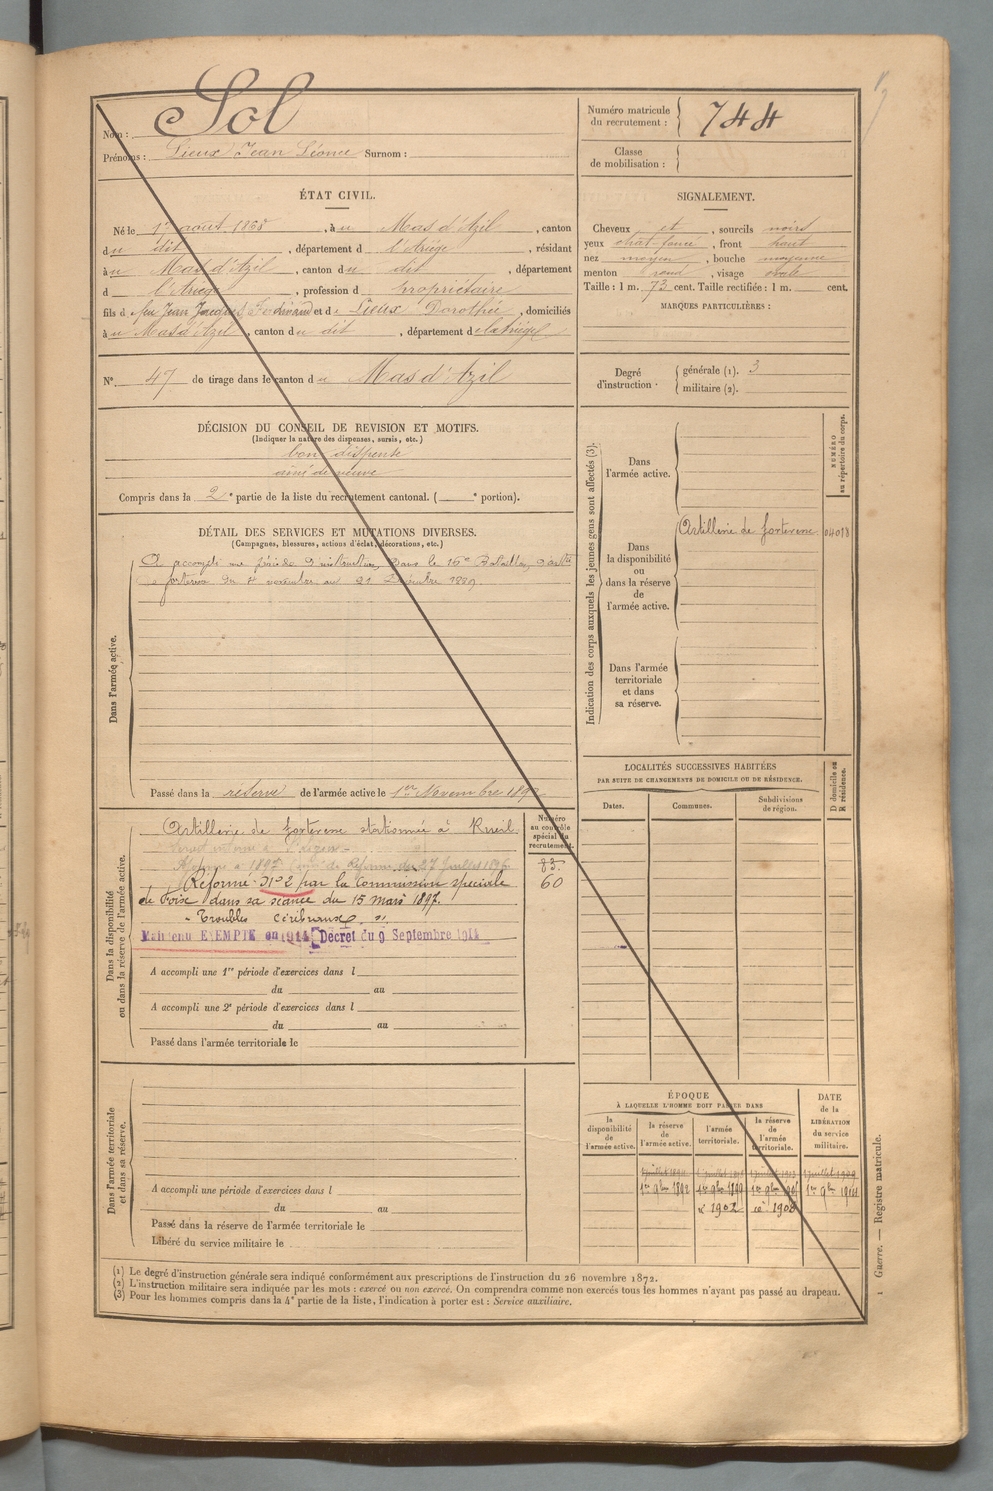 Nom : Sol
Prénoms : Lieux Jean Léonce Surnom :
Numéro matricule du recrutement : 744
Classe de mobilisation :
ÉTAT CIVIL.
Né le 1er août 1868, à u Mas d'Azil, canton
du dit, département d l'Ariège, résidant
à u Mas d'Azil, canton du dit, département
d l'Ariège, profession d propriétaire
fils de feu Jean Jacques Ferdinand et de Lieux Dorothée, domiciliés
à u Mas d'Azil, canton du dit, département de l'Ariège
N° 47 de tirage dans le canton du Mas d'Azil
SIGNALEMENT.
Cheveux et, sourcils noirs
yeux chat. foncé, front haut
nez moyen, bouche moyenne
menton rond, visage ovale
Taille : 1 m. 73 cent. Taille rectifiée : 1 m. cent.
MARQUES PARTICULIÈRES :
Degré d'instruction.
générale (1). 3
militaire (2).
DÉCISION DU CONSEIL DE REVISION ET MOTIFS.
(Indiquer la nature des dispenses, sursis, etc.)
bon dispensé
aîné de veuve
Compris dans la 2e partie de la liste du recrutement cantonal. ( e portion).
DÉTAIL DES SERVICES ET MUTATIONS DIVERSES.
(Campagnes, blessures, actions d'éclat, décorations, etc.)
Dans l'armée active.
A accompli une période d'instruction dans le 16e Bataillon d'artie
de forteresse du 8 novembre au 21 Décembre 1889.
Passé dans la réserve de l'armée active le 1er Novembre 1892
Indication des corps auxquels les jeunes gens sont affectés (3).
NUMÉRO au répertoire du corps.
Dans l'armée active.
Dans la disponibilité ou dans la réserve de l'armée active.
Artillerie de forteresse
Dans l'armée territoriale et dans sa réserve.
Dans la disponibilité ou dans la réserve de l'armée active.
Numéro au contrôle spécial du recrutement.
Artillerie de forteresse stationnée à Rueil
83.
60
Réformé N° 2 par la Commission spéciale
de Foix dans sa séance du 15 mars 1897.
Troubles cérébraux
Maintenu EXEMPTÉ en 1914 Décret du 9 Septembre 1914
A accompli une 1re période d'exercices dans l
du au
A accompli une 2e période d'exercices dans l
du au
Passé dans l'armée territoriale le
LOCALITÉS SUCCESSIVES HABITÉES
PAR SUITE DE CHANGEMENTS DE DOMICILE OU DE RÉSIDENCE.
Dates.
Communes.
Subdivisions de région.
D domicile ou R résidence.
Dans l'armée territoriale et dans sa réserve.
A accompli une période d'exercices dans l
du au
Passé dans la réserve de l'armée territoriale le
Libéré du service militaire le
ÉPOQUE
À LAQUELLE L'HOMME DOIT PASSER DANS
la disponibilité de l'armée active.
la réserve de l'armée active.
l'armée territoriale.
la réserve de l'armée territoriale.
DATE de la LIBÉRATION du service militaire.
1er 9bre 1892
1er 9bre 1899
1er 9bre 1914
1902
1908
(1) Le degré d'instruction générale sera indiqué conformément aux prescriptions de l'instruction du 26 novembre 1872.
(2) L'instruction militaire sera indiquée par les mots : exercé ou non exercé. On comprendra comme non exercés tous les hommes n'ayant pas passé au drapeau.
(3) Pour les hommes compris dans la 4e partie de la liste, l'indication à porter est : Service auxiliaire.
1 Guerre. — Registre matricule.